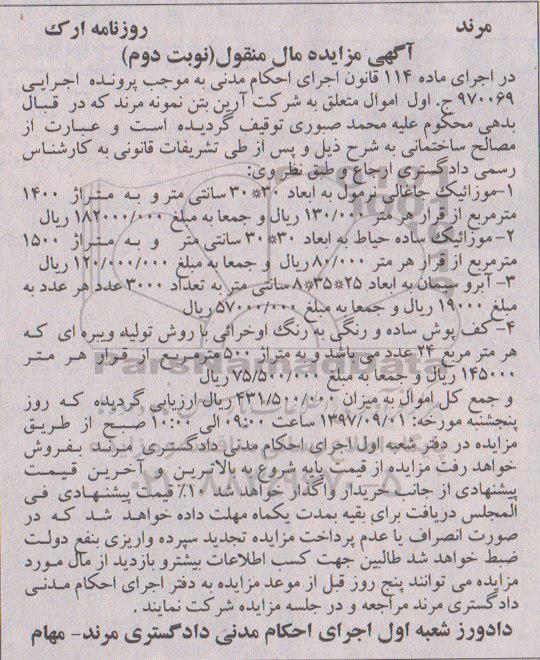 مرند روزنامه ارک
آگهی مزایده مال منقول(نوبت دوم)
در اجرای ماده ۱۱۴ قانون اجرای احکام مدنی به موجب پرونده اجرایی
۹۷۰۰۶۹ ج. اول اموال متعلق به شرکت آرین بتن نمونه مرند که در قبال
بدهی محکوم علیه محمد صبوری توقیف گردیده است و عبارت از
مصالح ساختمانی به شرح ذیل و پس از طی تشریفات قانونی به کارشناس
رسمی دادگستری ارجاع و طبق نظر وی:
۱-موزائیک جاغالی نرمول به ابعاد ۳۰*۳۰ سانتی متر و به متراژ ۱۴۰۰
مترمربع از قرار هر متر ۱۳۰/۰۰۰ ریال و جمعا به مبلغ ۱۸۲۰۰۰/۰۰۰ ریال
۲- موزائیک ساده حیاط به ابعاد ۳۰*۳۰ سانتی متر و به متراژ ۱۵۰۰
مترمربع از قرار هر متر ۸۰/۰۰۰ ریال و جمعا به مبلغ ۱۲۰/۰۰۰/۰۰۰ ریال
۳- آبرو سیمان به ابعاد ۲۵*۳۵*۸ سانتی متر به تعداد ۳۰۰۰ عدد هر عدد به
مبلغ ۱۹۰۰۰ ریال و جمعا به مبلغ ۵۷۰۰۰/۰۰۰ ریال
۴- کف پوش ساده و رنگی به رنگ اوخرائی با روش تولیه ویبره ای که
هر متر مربع ۲۴ عدد می باشد و به متراژ ۵۰۰ مترمربع از قرار هر متر
۱۴۵۰۰۰ ریال و جمعا به مبلغ ۷۵/۵۰۰/۰۰۰ ریال
و جمع کل اموال به میزان ۴۳۱/۵۰۰/۰۰۰ ریال ارزیابی گردیده که روز
پنجشنبه مورخه: ۱۳۹۷/۰۹/۰۱ ساعت ۰۹:۰۰ الی ۱۰:۰۰ صبح از طریق
مزایده در دفتر شعبه اول اجرای احکام مدنی دادگستری مرند بفروش
خواهد رفت مزایده از قیمت پایه شروع به بالاترین و آخرین قیمت
پیشنهادی از جانب خریدار واگذار خواهد شد ۱۰٪ قیمت پیشنهادی فی
المجلس دریافت برای بقیه بمدت یکماه مهلت داده خواهد شد که در
صورت انصراف یا عدم پرداخت مزایده تجدید سپرده واریزی بنفع دولت
ضبط خواهد شد طالبین جهت کسب اطلاعات بیشترو بازدید از مال مورد
مزایده می توانند پنج روز قبل از موعد مزایده به دفتر اجرای احکام مدنی
دادگستری مرند مراجعه و در جلسه مزایده شرکت نمایند .
دادورز شعبه اول اجرای احکام مدنی دادگستری مرند- مهام
ParsNamadData